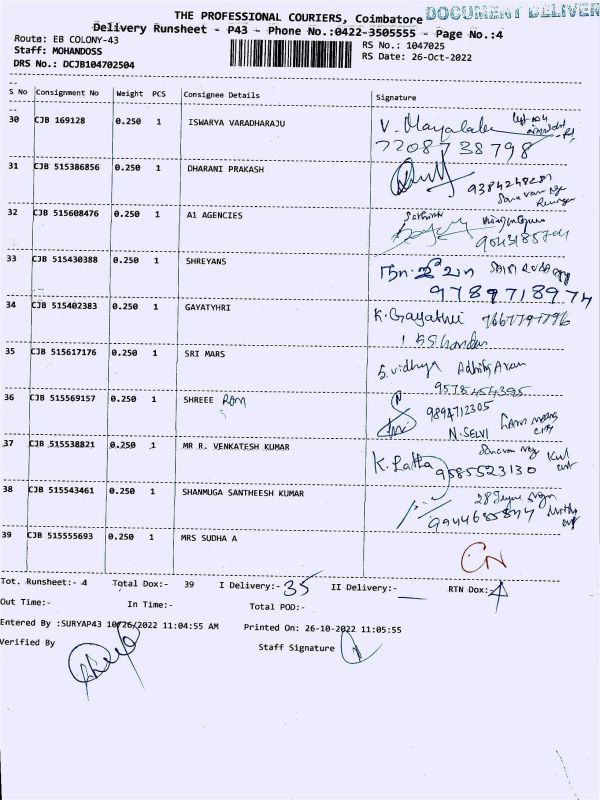 THE PROFESSIONAL COURIERS, Coimbatore
DOCUMENT DELIVER
Delivery Runsheet - P43 - Phone No.:0422-3505555 - Page No.:4
Route: EB COLONY-43
RS No.: 1047025
Staff: MOHANDOSS
RS Date: 26-Oct-2022
DRS No.: DCJB104702504
S No Consignment No Weight PCS Consignee Details Signature
30 CJB 169128 0.250 1 ISWARYA VARADHARAJU
7708738798
31 CJB 515386856 0.250 1 DHARANI PRAKASH
9384248281
32 CJB 515608476 0.250 1 A1 AGENCIES
33 CJB 515430388 0.250 1 SHREYANS
9789718974
34 CJB 515402383 0.250 1 GAYATYHRI K. Gayathri
35 CJB 515617176 0.250 1 SRI MARS S. vidhya
36 CJB 515569157 0.250 1 SHREEE RAM 9894712305
N. SELVI
37 CJB 515538821 0.250 1 MR R. VENKATESH KUMAR K. Latha
9585523130
38 CJB 515543461 0.250 1 SHANMUGA SANTHEESH KUMAR
39 CJB 515555693 0.250 1 MRS SUDHA A CN
Tot. Runsheet:- 4 Total Dox:- 39 I Delivery:- 35 II Delivery:- RTN Dox:- 4
Out Time:- In Time:- Total POD:-
Entered By :SURYAP43 10/26/2022 11:04:55 AM Printed On: 26-10-2022 11:05:55
Verified By Staff Signature